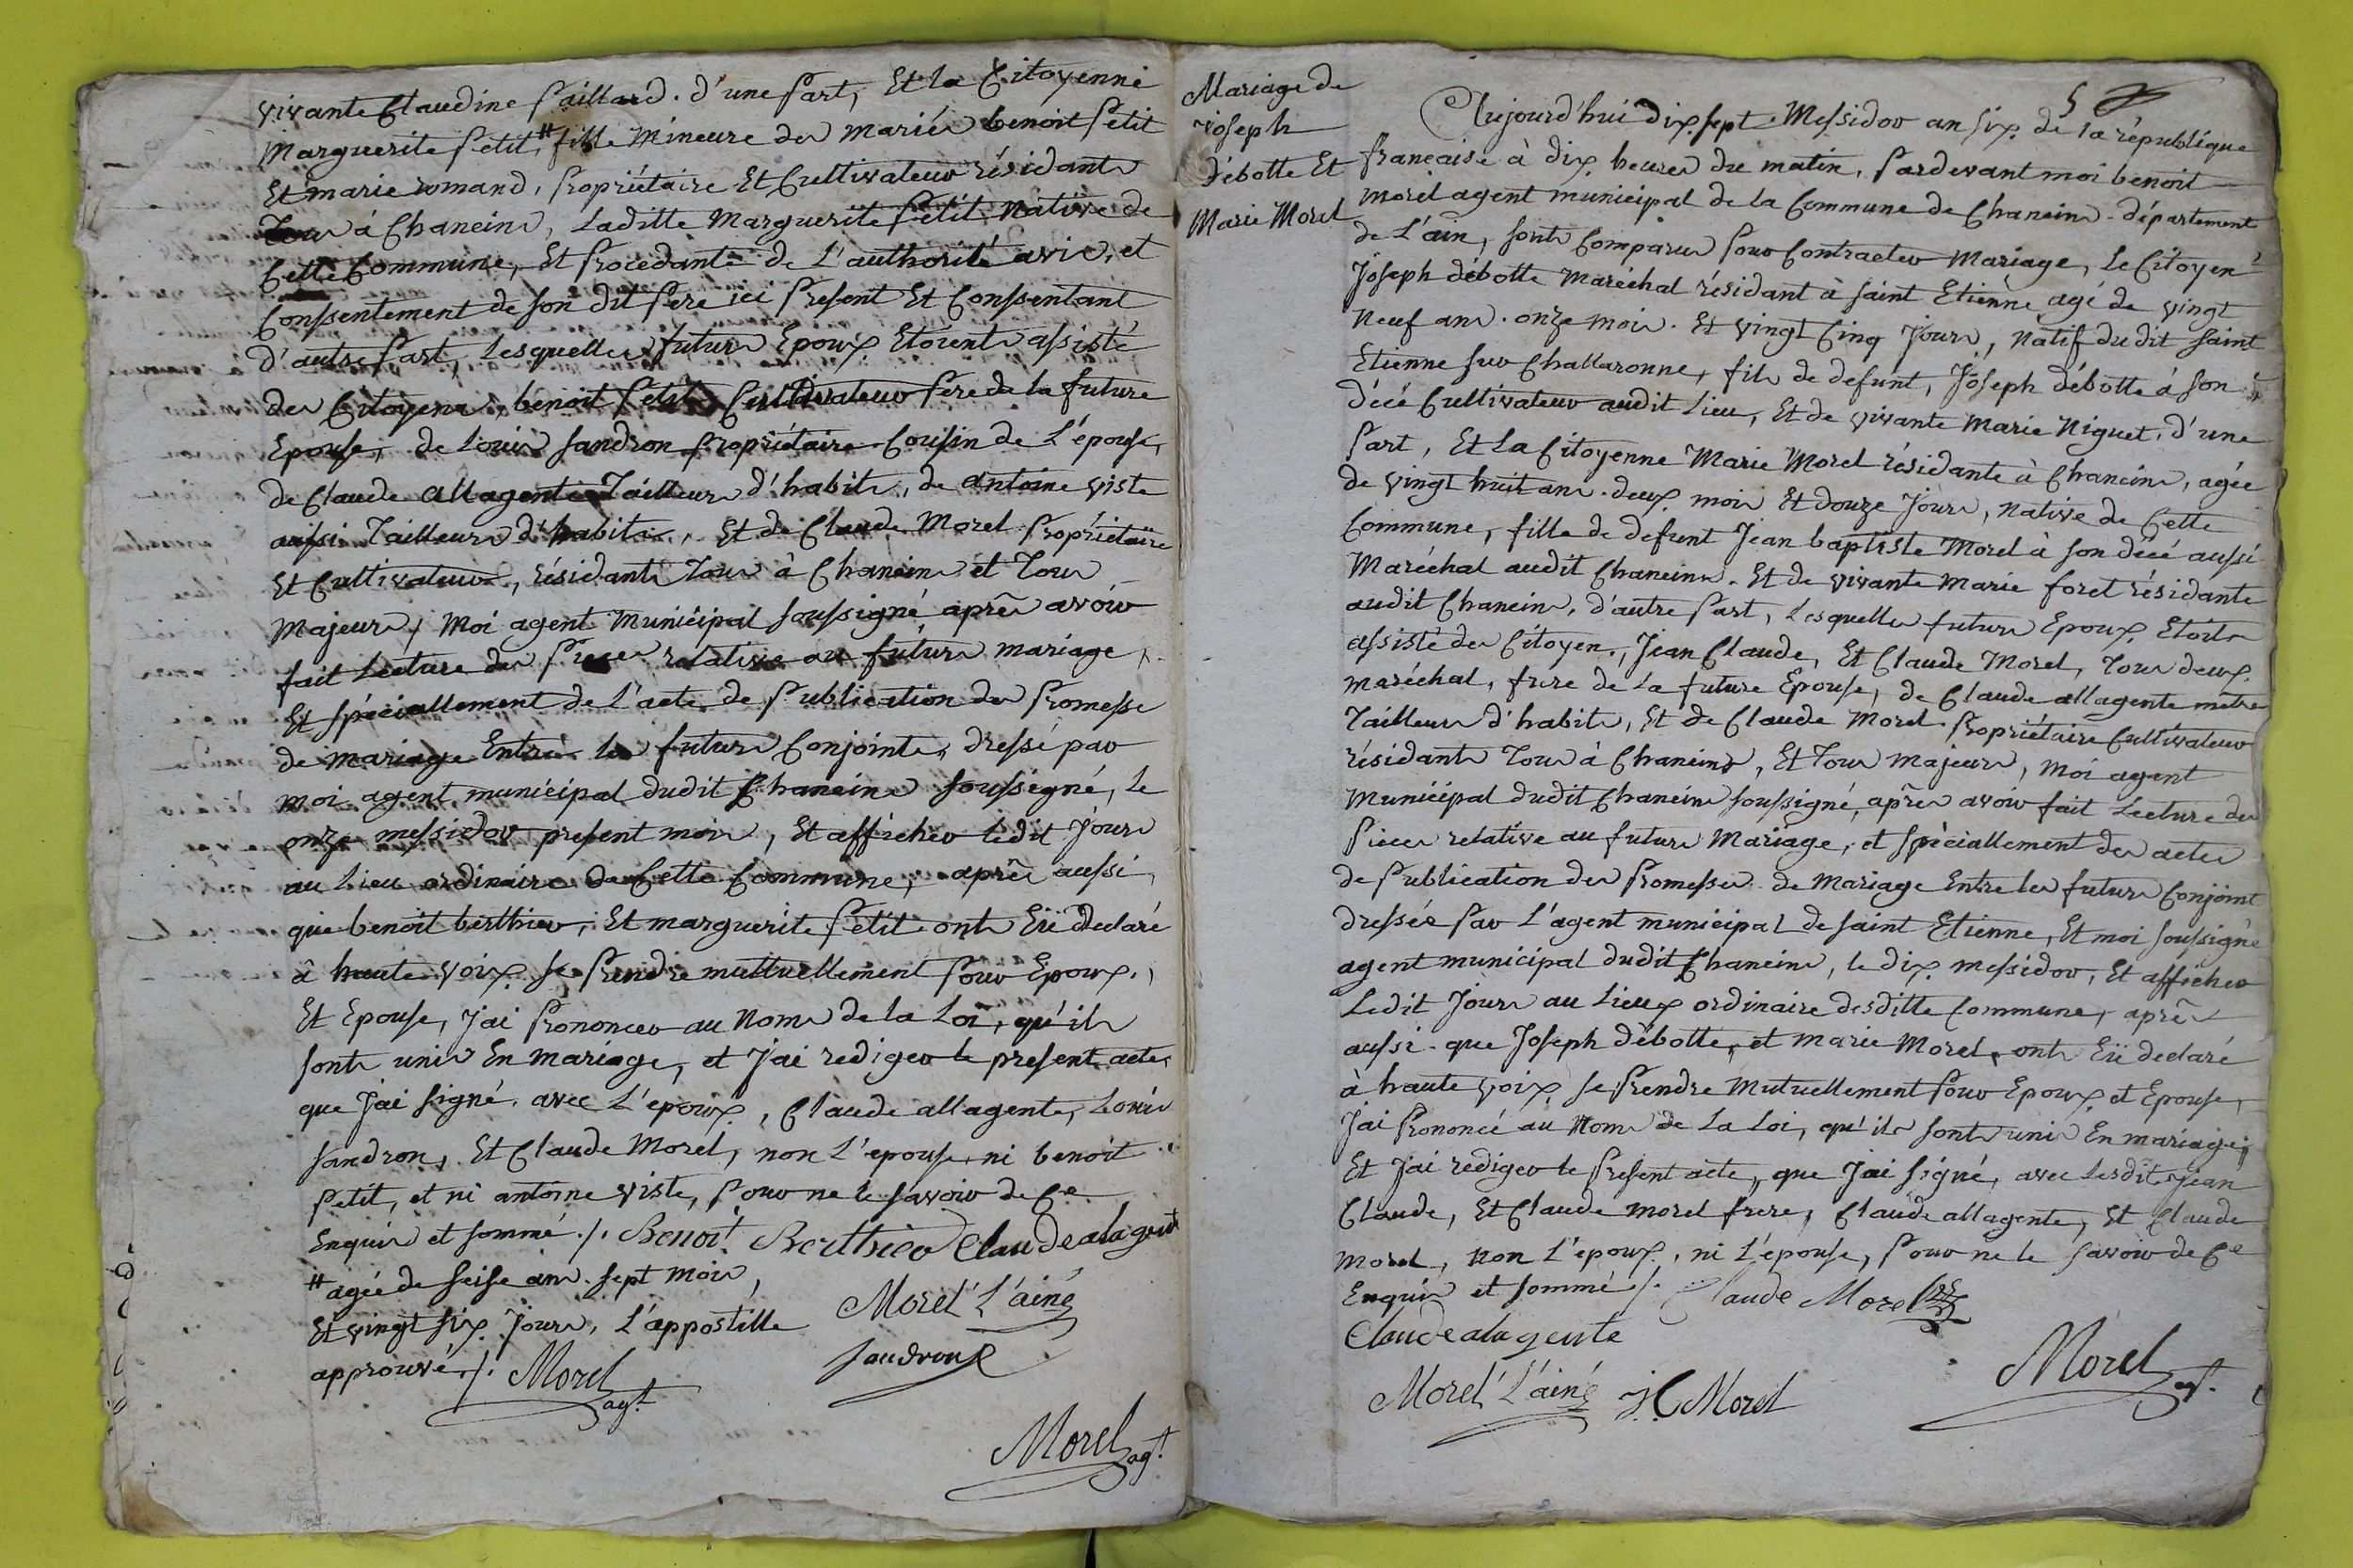 vivante Claudine Paillard. d'une part, Et la Citoyenne
Marguerite petit, # fille mineure des mariés benoit petit
Et marie romand, propriétaire Et Cultivateur résidants
Tous à Chaneins, Laditte Marguerite petit Native de
Cette Commune, Et procédante de L'authorité avis, et
Conssentement de son dit pere ici present Et Conssentant
d'autre part, Lesquelles futurs Epoux Etoients assisté
des Citoyens, benoit petit Cultivateur pere de la future
Epouse, de Louis sandron propriétaire Cousin de L'épouse,
de Claude allagente Tailleurs d'habits, de antoine viste
aussi Tailleurs d'habits, Et de Claude Morel propriétaire
Et Cultivateur, résidants Tous à Chaneins et Tous
Majeurs, Moi agent Municipal soussigné après avoir
fait Lecture des pieces relative au futurs mariage,
Et spéciallement de L'acte de publication des promesse
de mariage Entre les futurs Conjoints, dressé par
moi agent municipal dudit Chaneins soussigné, le
onze messidor present mois, Et afficher ledit Jours
au Lieu ordinaire de Cette Commune, après aussi
que benoit berthier, Et marguerite petit onts Eü declaré
à haute voix se prendre muttuellement pour Epoux,
Et Epouse, J'ai prononcer au Noms de la Loi, qu'ils
sonts unis En mariage, et J'ai rediger le present acte
que J'ai signé avec L'epoux, Claude allagente, Louis
sandron, Et Claude Morel, non L'epouse ni benoit
petit, et ni antoine viste, pour ne le savoir de Ce
Enquis et sommé ./. Benoit Berthier Claude alagente
# agée de seise ans sept mois,
Et vingt six Jours, L'appostille
approuvé ./. Morel agt
Morel L'ainé
sandron
Morel agt
Mariage de
Joseph
débotte Et
Marie Morel
5
Aujourd'hui dix sept Messidor an six de la république
française à dix heures du matin, pardevant moi benoit
morel agent municipal de la Commune de Chaneins département
de L'ain, sonts Comparus pour Contracter Mariage, Le Citoyen
Joseph débotte Maréchal résidant à saint Etienne agé de vingt
Neuf ans onze mois Et vingt Cinq Jours, natif du dit saint
Etienne sur Challaronne, fils de defunt, Joseph débotte à son
décé Cultivateur audit Lieu, Et de vivante Marie Niguet, d'une
part, Et La Citoyenne Marie Morel résidante à Chaneins, agée
de vingt huit ans deux mois Et douze Jours, native de Cette
Commune, fille de defunt Jean baptiste Morel à son décé aussi
Maréchal audit Chaneins. Et de vivante Marie foret résidante
audit Chaneins, d'autre part, Lesquelles futurs Epoux Etoits
assisté des Citoyen, Jean Claude, Et Claude Morel, Tous deux
maréchal, frere de la future Epouse, de Claude allagente metre
Tailleurs d'habits, Et de Claude Morel propriétaire Cultivateur
résidants Tous à Chaneins, Et Tous Majeurs, Moi agent
Municipal dudit Chaneins soussigné, après avoir fait Lecture des
pieces relative au futurs Mariage, et spéciallement des actes
de publication des promesses de Mariage Entre les futurs Conjoint
dressées par L'agent municipal de saint Etienne, Et moi soussigné
agent municipal dudit Chaneins, le dix messidor, Et afficher
Ledit Jours au Lieux ordinaire desditte Commune, après
aussi que Joseph débotte, et marie Morel, onts Eü declaré
à haute voix se prendre Mutuellement pour Epoux et Epouse,
J'ai prononcé au Noms de La Loi, qu'ils sonts unis En mariage,
Et J'ai rediger le present acte, que J'ai signé, avec Lesdits Jean
Claude, Et Claude Morel frere, Claude allagente, Et Claude
Morel, Non L'epoux, ni L'épouse, pour ne le savoir de Ce
Enquis et sommé ./. Claude Morel
Claude alagente
Morel L'ainé JC Morel
Morel agt.